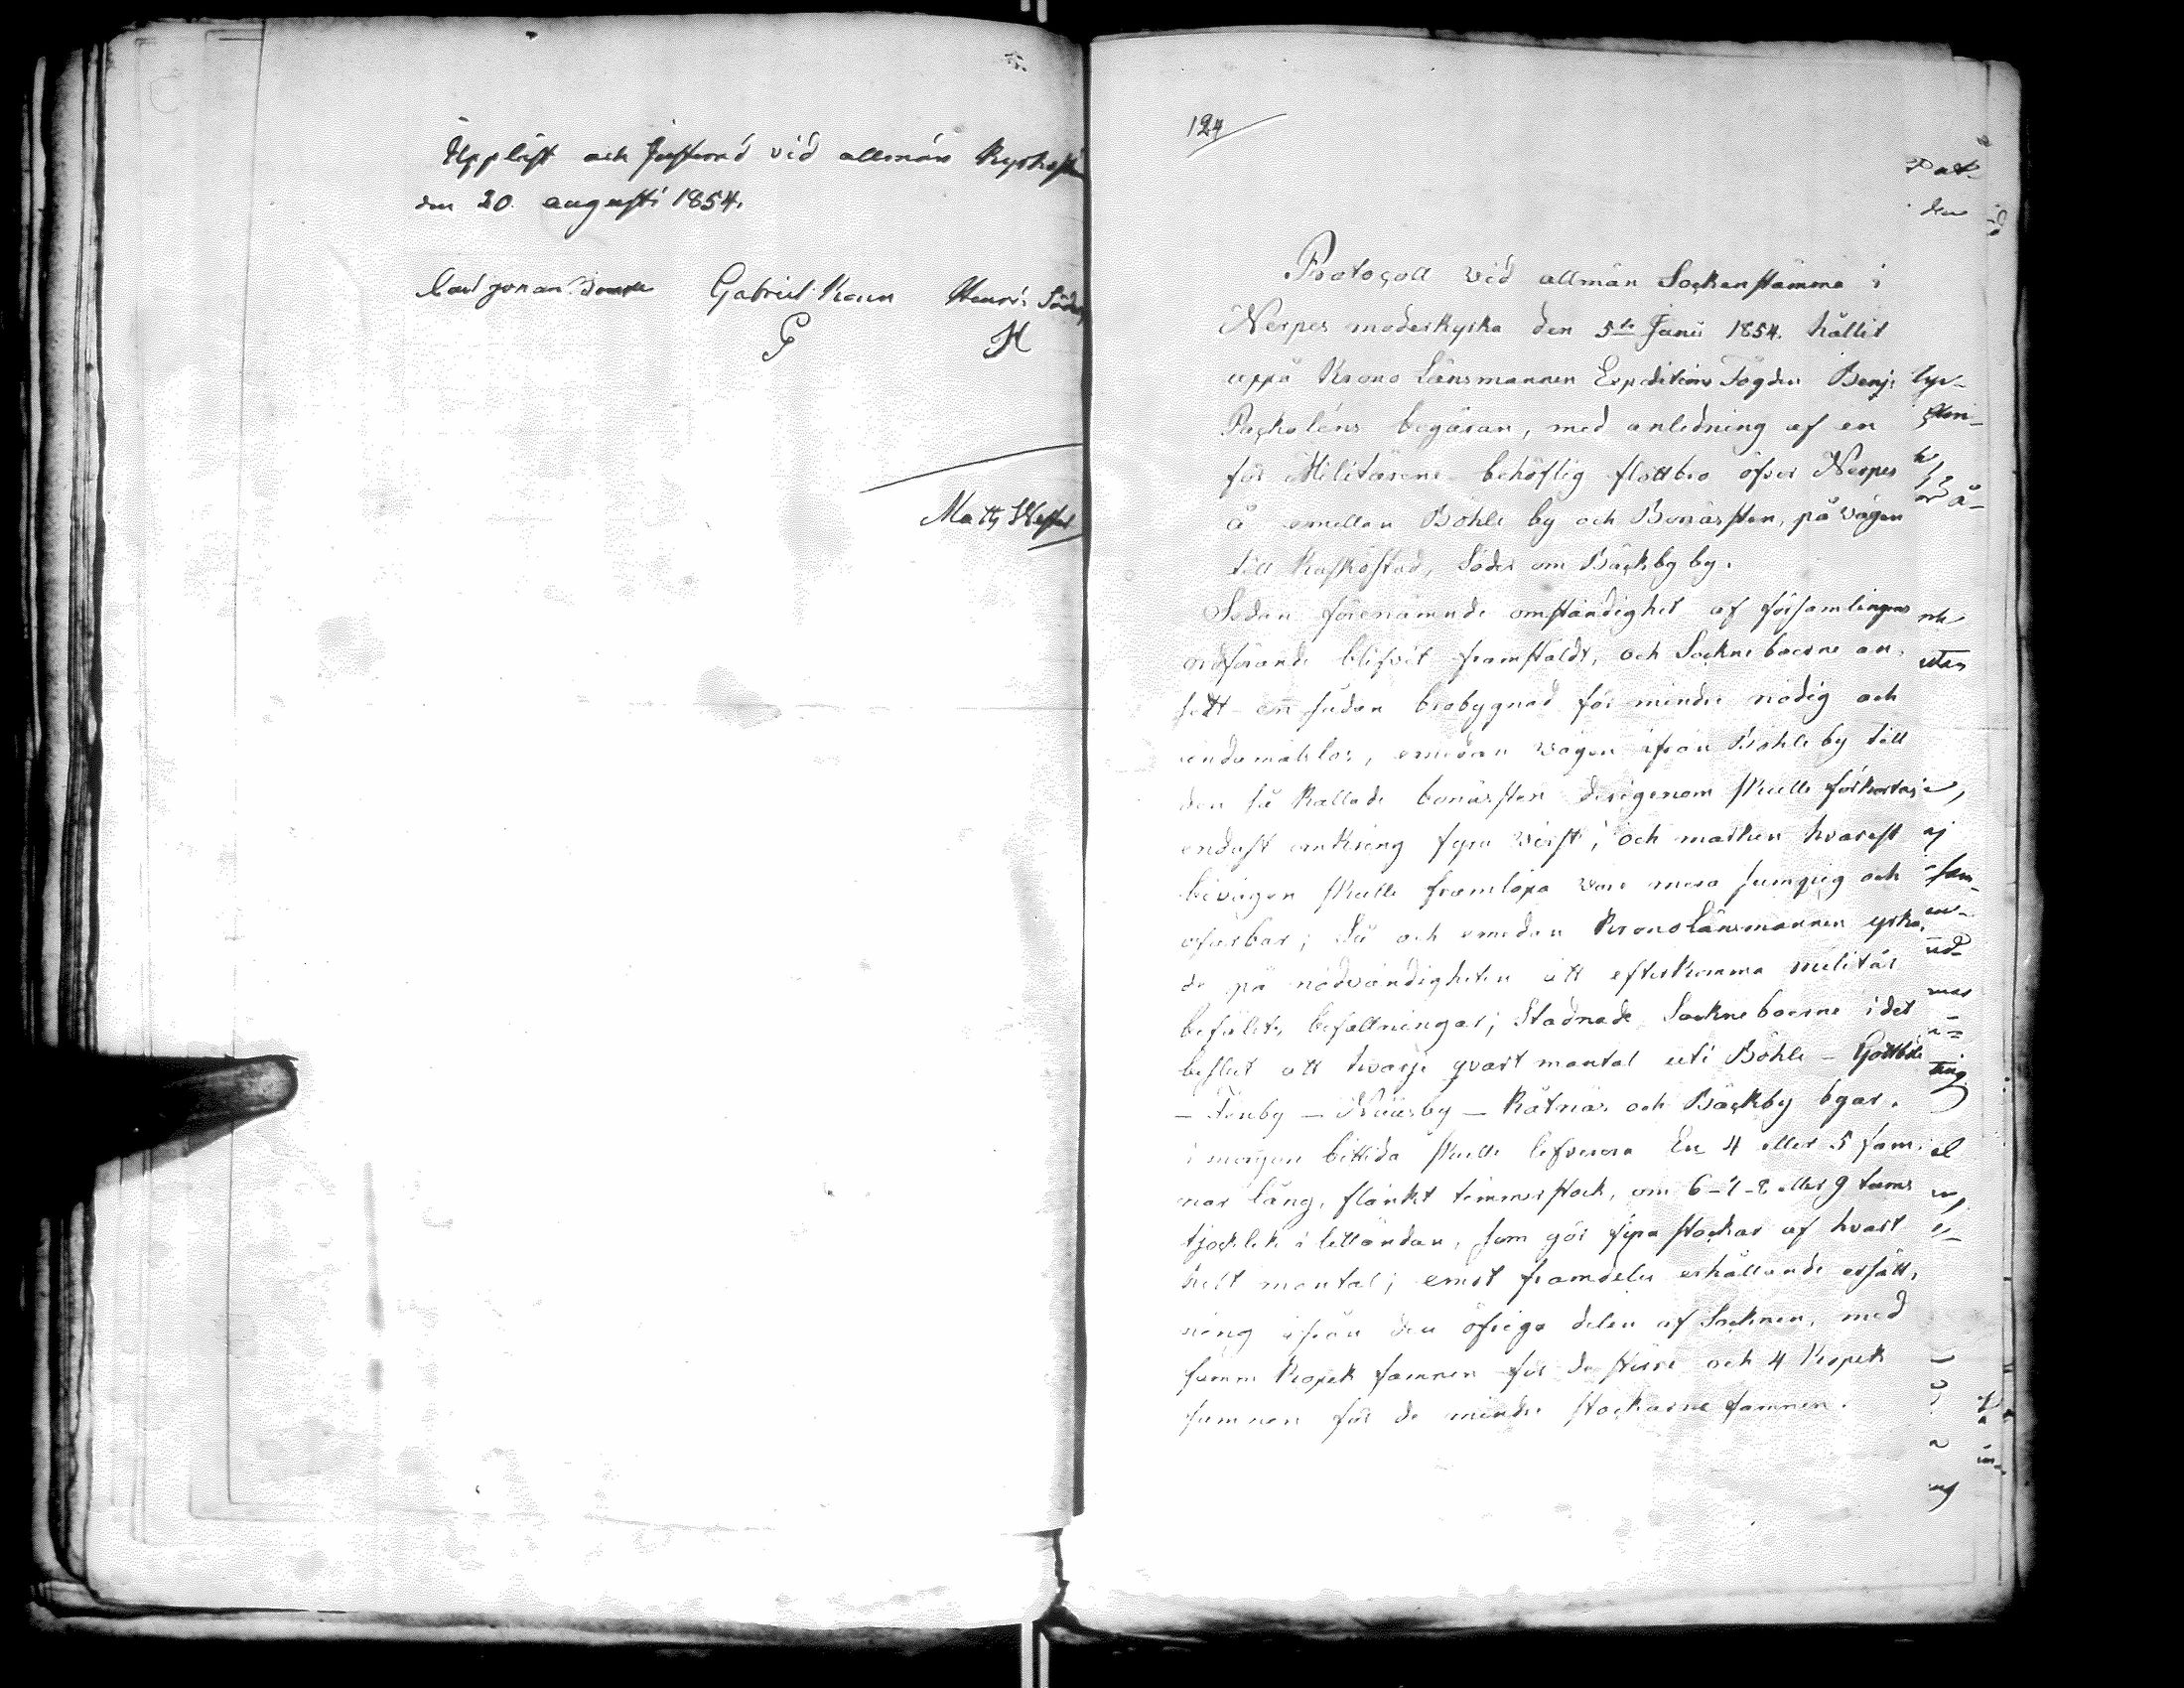 Uppläst och Justerad vid allmän Kyrkost
den 20. augusti 1854.
Carl Johan Gabriel Henric Söder
G H
Matts Wester
124
Protocoll vid allmän Sockenstämma i
Nerpes moderkyrka den 5te Junii 1854. hållit
uppå Krono Länsmannen Expeditions Fogden Benj:
Packaléns begäran, med anledning af en
för Militären behöflig flottbro öfver Nerpes
å emellan Böhle by och Bonäsften, på vägen
till Kaskö stad, Söder om Bäckby by.
Sedan förenämnde omständighet af församlingens
ordförande blifvit framstäldt, och Sockneboerne an-
sett en sådan brobygnad för mindre nödig och
ändamålslös, emedan vägen ifrån Böhle by till
den så kallade bonäsften derigenom skulle förkortas
endast omkring fyra verst, och marken hvarest
bivägen skulle framlöpa vore mera sumpig och
ofarbar; Så och emedan Krono Länsmannen yrka-
de på nödvändigheten att efterkomma militär
befälets befallningar; Stadnade Sockneboerne i det
beslut att hvarje qvart mantal uti Böhle - Gottböle
- Finby - Näsby - Kåtnäs och Bäckby byar.
i morgon bittida skulle lefverera En 4 eller 5 fam-
nar lång, slänkt timmerstock, om 6-7-8 eller 9 tums
tjocklek i lilländan, som gör fyra stockar af hvart
helt mantal; emot framdeles erhållande ersätt-
ning ifrån den öfriga delen af Socknen, med
femm Kopek famnen för de större och 4 Kopek
famnen för de mindre stockarne famnen.
den
utan
ej